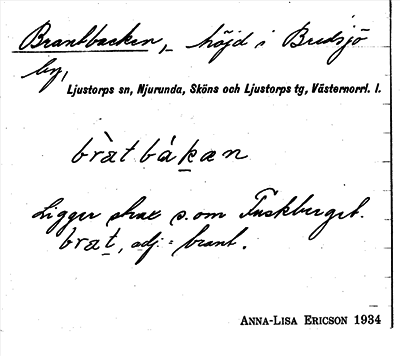 Brantbacken, höjd i Bredsjö
by,
Ljustorps sn, Njurunda, Sköns och Ljustorps tg, Västernorrl. l.
bràt bákan
Ligger strax s. om Fuskberget.
brat, adj. = brant.
ANNA-LISA ERICSON 1934